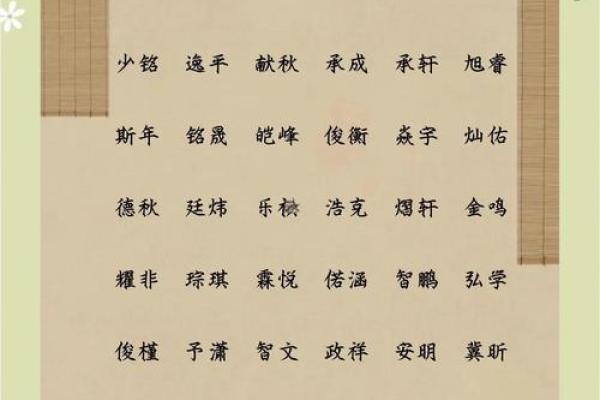 少铭 逸平 献秋 承成 承轩 旭睿
斯年 铭晟 皑峰 俊衡 焱宇 灿佑
德秋 廷炜 乐 浩克 熠轩 金鸣
耀非 琮琪 霖悦 偌涵 智鹏 弘学
俊槿 予潇 智文 政祥 安明 冀昕